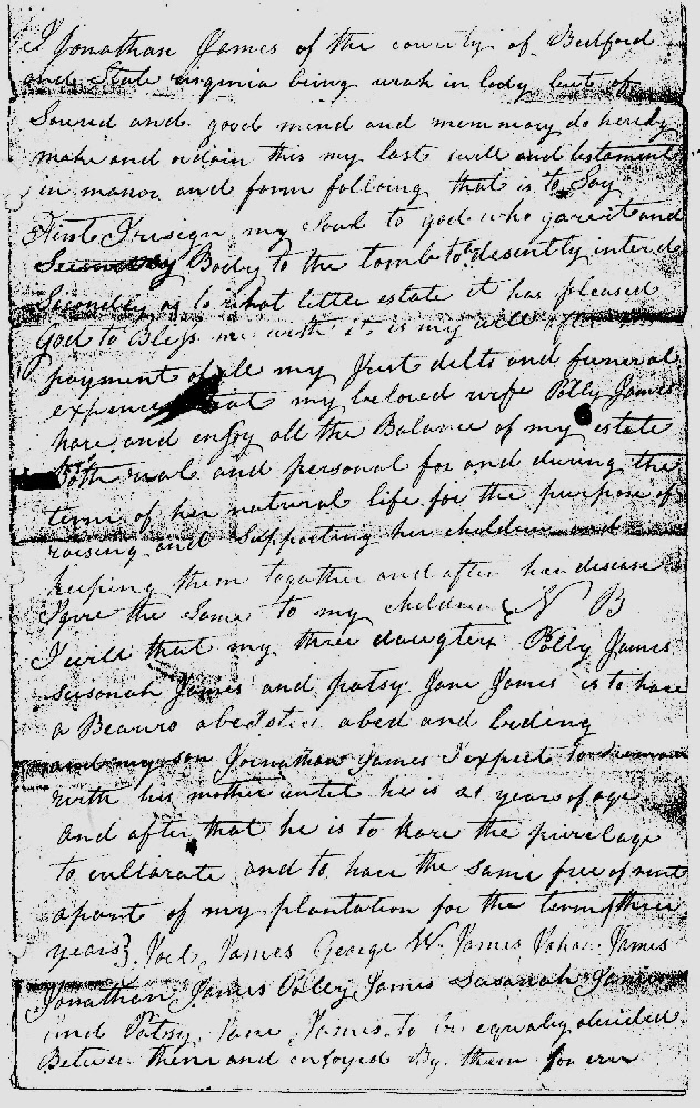 I Jonathan James of the county of Bedford
and State virginia being weak in body but of
Sound and good mind and memmory do hereby
make and ordain this my last will and testament
in manor and form following that is to Say
First I resign my Soul to god who gave it and
Body to the tomb to be desently intered
Secondly as to what little estate it has pleased
God to Bless me with it is my will after
payment of all my Just debts and funeral
expences that my beloved wife Polly James
have and enjoy all the Balance of my estate
Both real and personal for and during the
term of her natural life for the purpose of
raising and Supporting her children and
keeping them together and after her disease
I give the Same to my children N B
I will that my three daughters Polly James
susanah James and patsy Jane James is to have
a Beauro abedsted abed and beding
and my son Jonathan James I expect to
with his mother untill he is 21 years of age
and after that he is to have the privelage
to cultivate and to have the same free of rent
apart of my plantation for the term of three
years} Joel James George W. James James
Jonathan James Polley James Susanah James
and Patsy Jane James to be equaly devided
Between them and enjoyed By them for ever